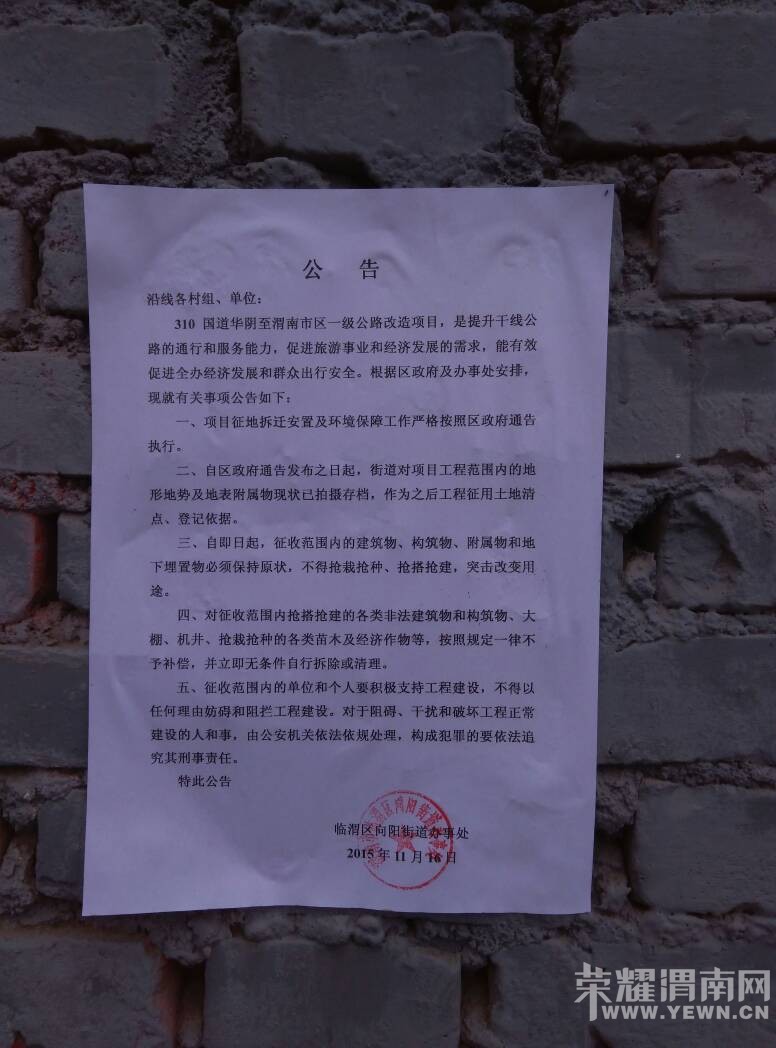 公 告
沿线各村组、单位：
310 国道华阴至渭南市区一级公路改造项目，是提升干线公
路的通行和服务能力，促进旅游事业和经济发展的需求，能有效
促进全办经济发展和群众出行安全。根据区政府及办事处安排，
现就有关事项公告如下：
一、项目征地拆迁安置及环境保障工作严格按照区政府通告
执行。
二、自区政府通告发布之日起，街道对项目工程范围内的地
形地势及地表附属物现状已拍摄存档，作为之后工程征用土地清
点、登记依据。
三、自即日起，征收范围内的建筑物、构筑物、附属物和地
下埋置物必须保持原状，不得抢栽抢种、抢搭抢建，突击改变用
途。
四、对征收范围内抢搭抢建的各类非法建筑物和构筑物、大
棚、机井、抢栽抢种的各类苗木及经济作物等，按照规定一律不
予补偿，并立即无条件自行拆除或清理。
五、征收范围内的单位和个人要积极支持工程建设，不得以
任何理由妨碍和阻拦工程建设。对于阻碍、干扰和破坏工程正常
建设的人和事，由公安机关依法依规处理，构成犯罪的要依法追
究其刑事责任。
特此公告
临渭区向阳街道办事处
2015 年 11 月 16 日
荣耀渭南网
WWW.YEWN.CN